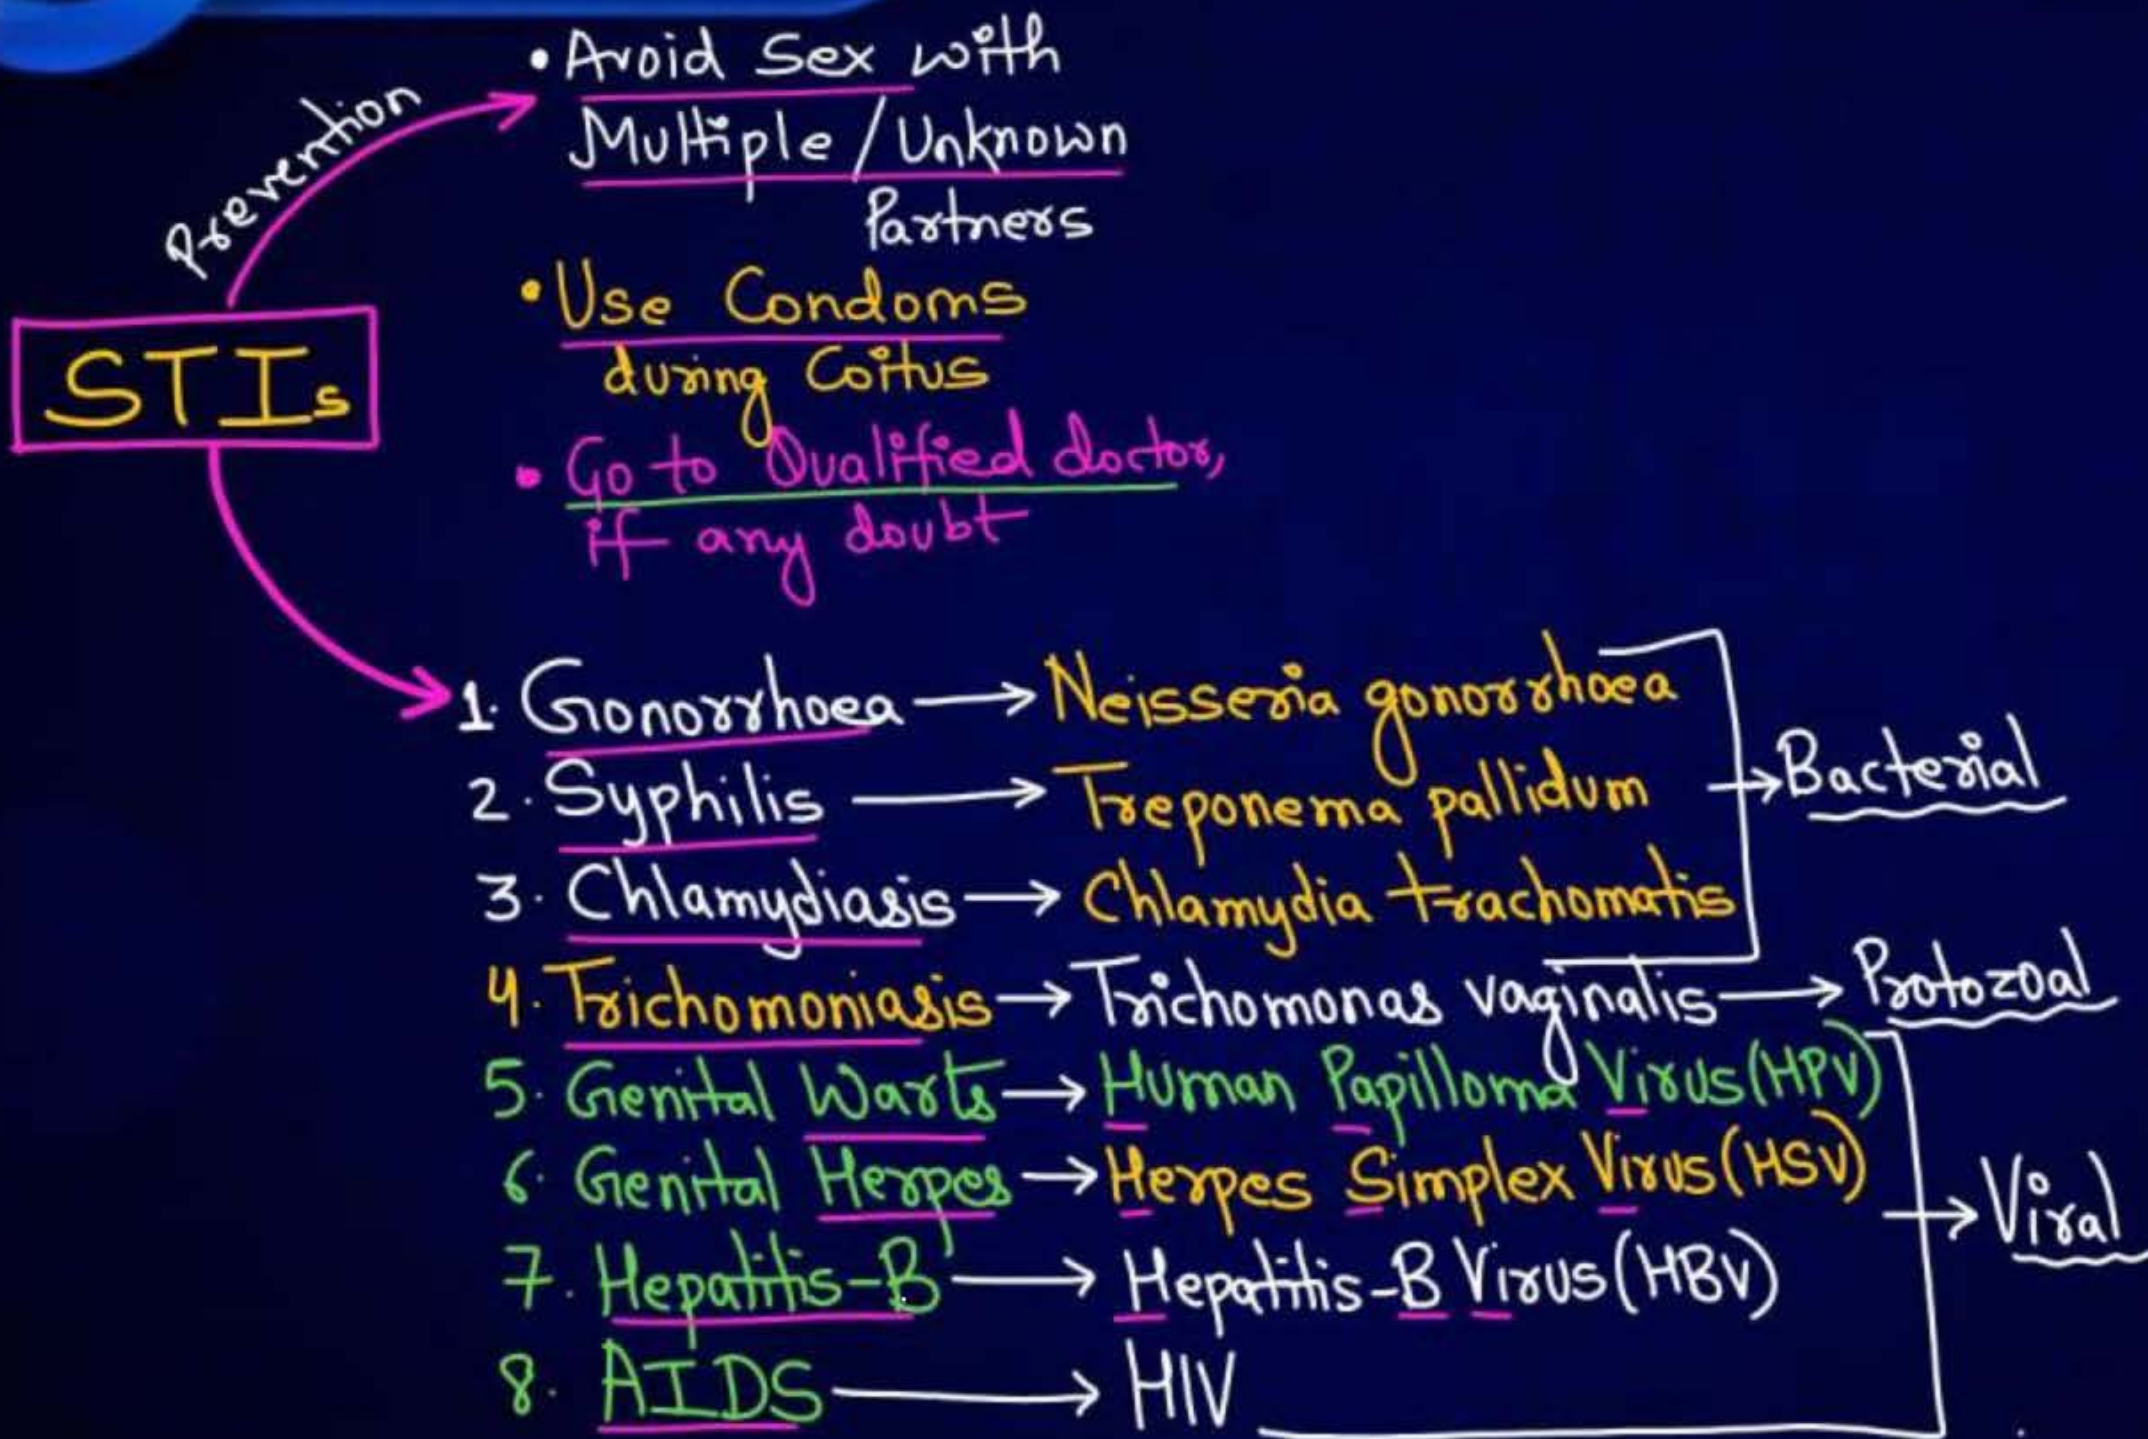 Prevention
• Avoid Sex with
Multiple / Unknown
Partners
• Use Condoms
during Coitus
• Go to Qualified doctor,
if any doubt
STIs
1. Gonorrhoea → Neisseria gonorrhoea
2. Syphilis → Treponema pallidum
3. Chlamydiasis → Chlamydia trachomatis
→ Bacterial
4. Trichomoniasis → Trichomonas vaginalis → Protozoal
5. Genital Warts → Human Papilloma Virus (HPV)
6. Genital Herpes → Herpes Simplex Virus (HSV)
7. Hepatitis-B → Hepatitis-B Virus (HBV)
8. AIDS → HIV
→ Viral